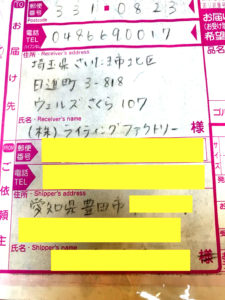 TO
郵便番号 331-0823
Postcode
電話 TEL 0486690017
お届け先
お届け
希望
住所・Receiver's address
埼玉県さいたま市北区
日進町3-818
ウェルズさくら107
氏名・Receiver's name
(株)ライティングファクトリー
様
FROM
郵便番号
電話 TEL
ご依頼主
住所・Shipper's address
愛知県豊田市
氏名・Shipper's name
様